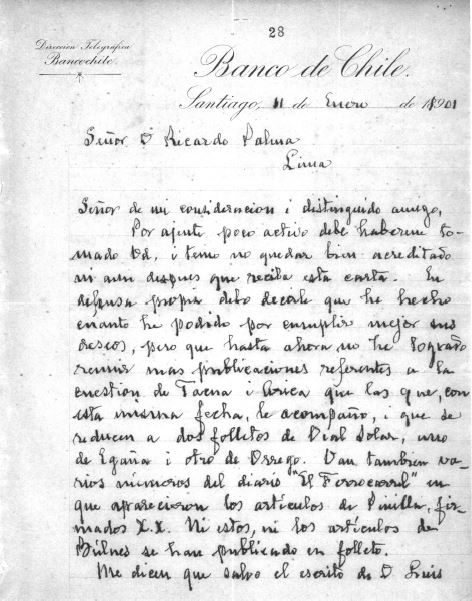 28
Dirección Telegráfica
Bancochile.
Banco de Chile.
Santiago, 11 de Enero de 1901
Señor D Ricardo Palma
Lima
Señor de mi consideracion i distinguido amigo,
Por ajente poco activo debe haberme to-
mado Ud, i temo no quedar bien acreditado
ni aun despues que reciba esta carta. En
defensa propia debo decirle que he hecho
cuanto he podido por cumplir mejor sus
deseos, pero que hasta ahora no he logrado
reunir mas publicaciones referentes a la
cuestion de Tacna i Arica que las que, con
esta misma fecha, le acompaño, i que se
reducen a dos folletos de Vial Solar, uno
de Egaña i otro de Orrego. Van tambien va-
rios números del diario "El Ferrocarril" en
que aparecieron los artículos de Pinilla, fir-
mados X.X. Ni estos, ni los artículos de
Búlnes se han publicado en folleto.
Me dicen que salvo el escrito de D Luis